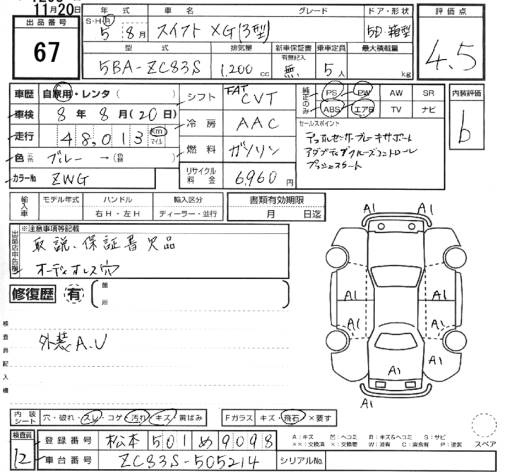 11月20日
出品番号 67
年式 S・H・R 5年 8月
車名 スイフト XG(3型)
グレード
ドア・形状 5D 箱型
評価点 4.5
型式 5BA-ZC83S
排気量 1,200 cc
新車保証書 有無記入 無
乗車定員 5人
最大積載量 kg
車歴 自家用・レンタ( )
車検 8年 8月(20日)
走行 48,013 Km マイル
色 ブルー →( )
カラーNo ZWG
シフト FAT CVT
冷房 AAC
燃料 ガソリン
リサイクル料金 6,960円
純正のみ PS PW AW SR
ABS エアB TV ナビ
セールスポイント
デュアルセンサーブレーキサポート
アダプティブクルーズコントロール
プッシュスタート
内装評価 b
輸入車 モデル年式 ハンドル 右H・左H 輸入区分 ディーラー・並行
書類有効期限 月 日迄
出品店申告欄 ※注意事項等記載
取説、保証書欠品
オーディオレス穴
修復歴 有 箇所
検査員記入欄
外装A.U
A1 A1
A1 A1
A1 A1
A1
A1 A1
内装シート 穴・破れ・スレ・コゲ・汚れ・キズ・黄ばみ
Fガラス キズ・飛石・×要す
検査員 12
登録番号 松本 501 め 9098
車台番号 ZC83S-505214
シリアルNo.
A:キズ
スペア